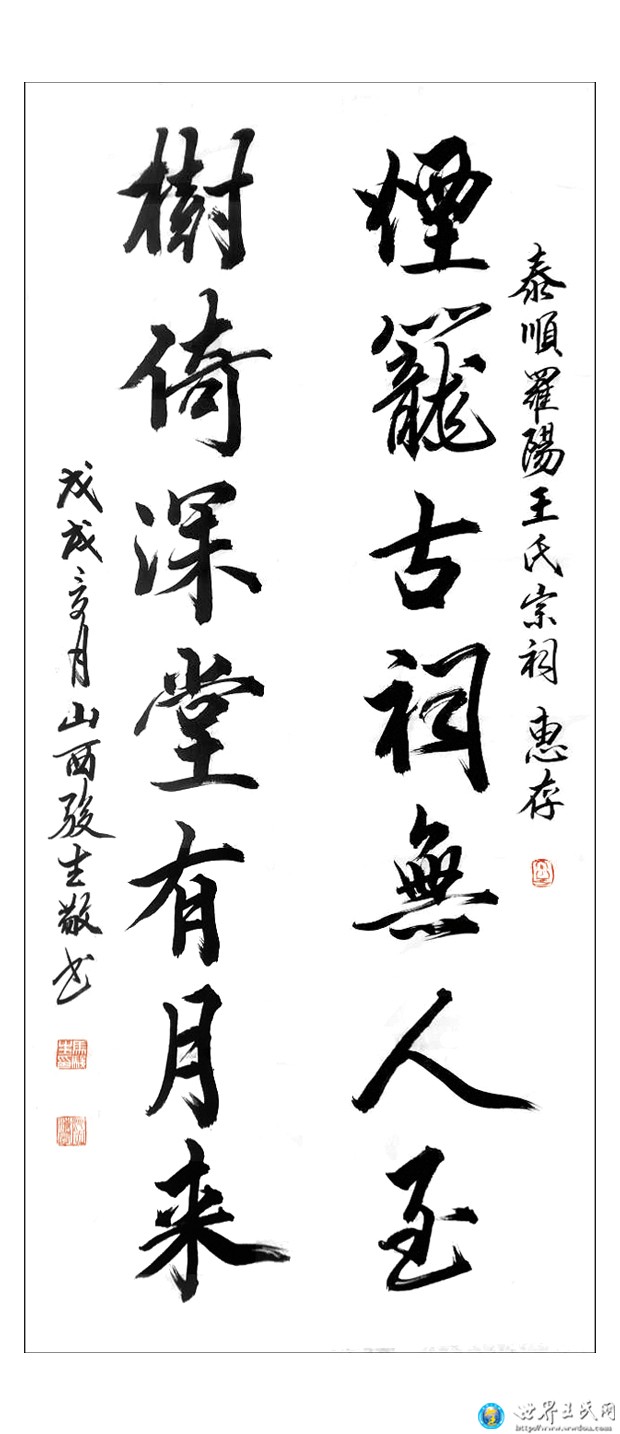 泰順羅陽王氏宗祠 惠存
煙籠古祠無人至
樹倚深堂有月来
戊戌夏月山西駿生敬书
世界王氏网